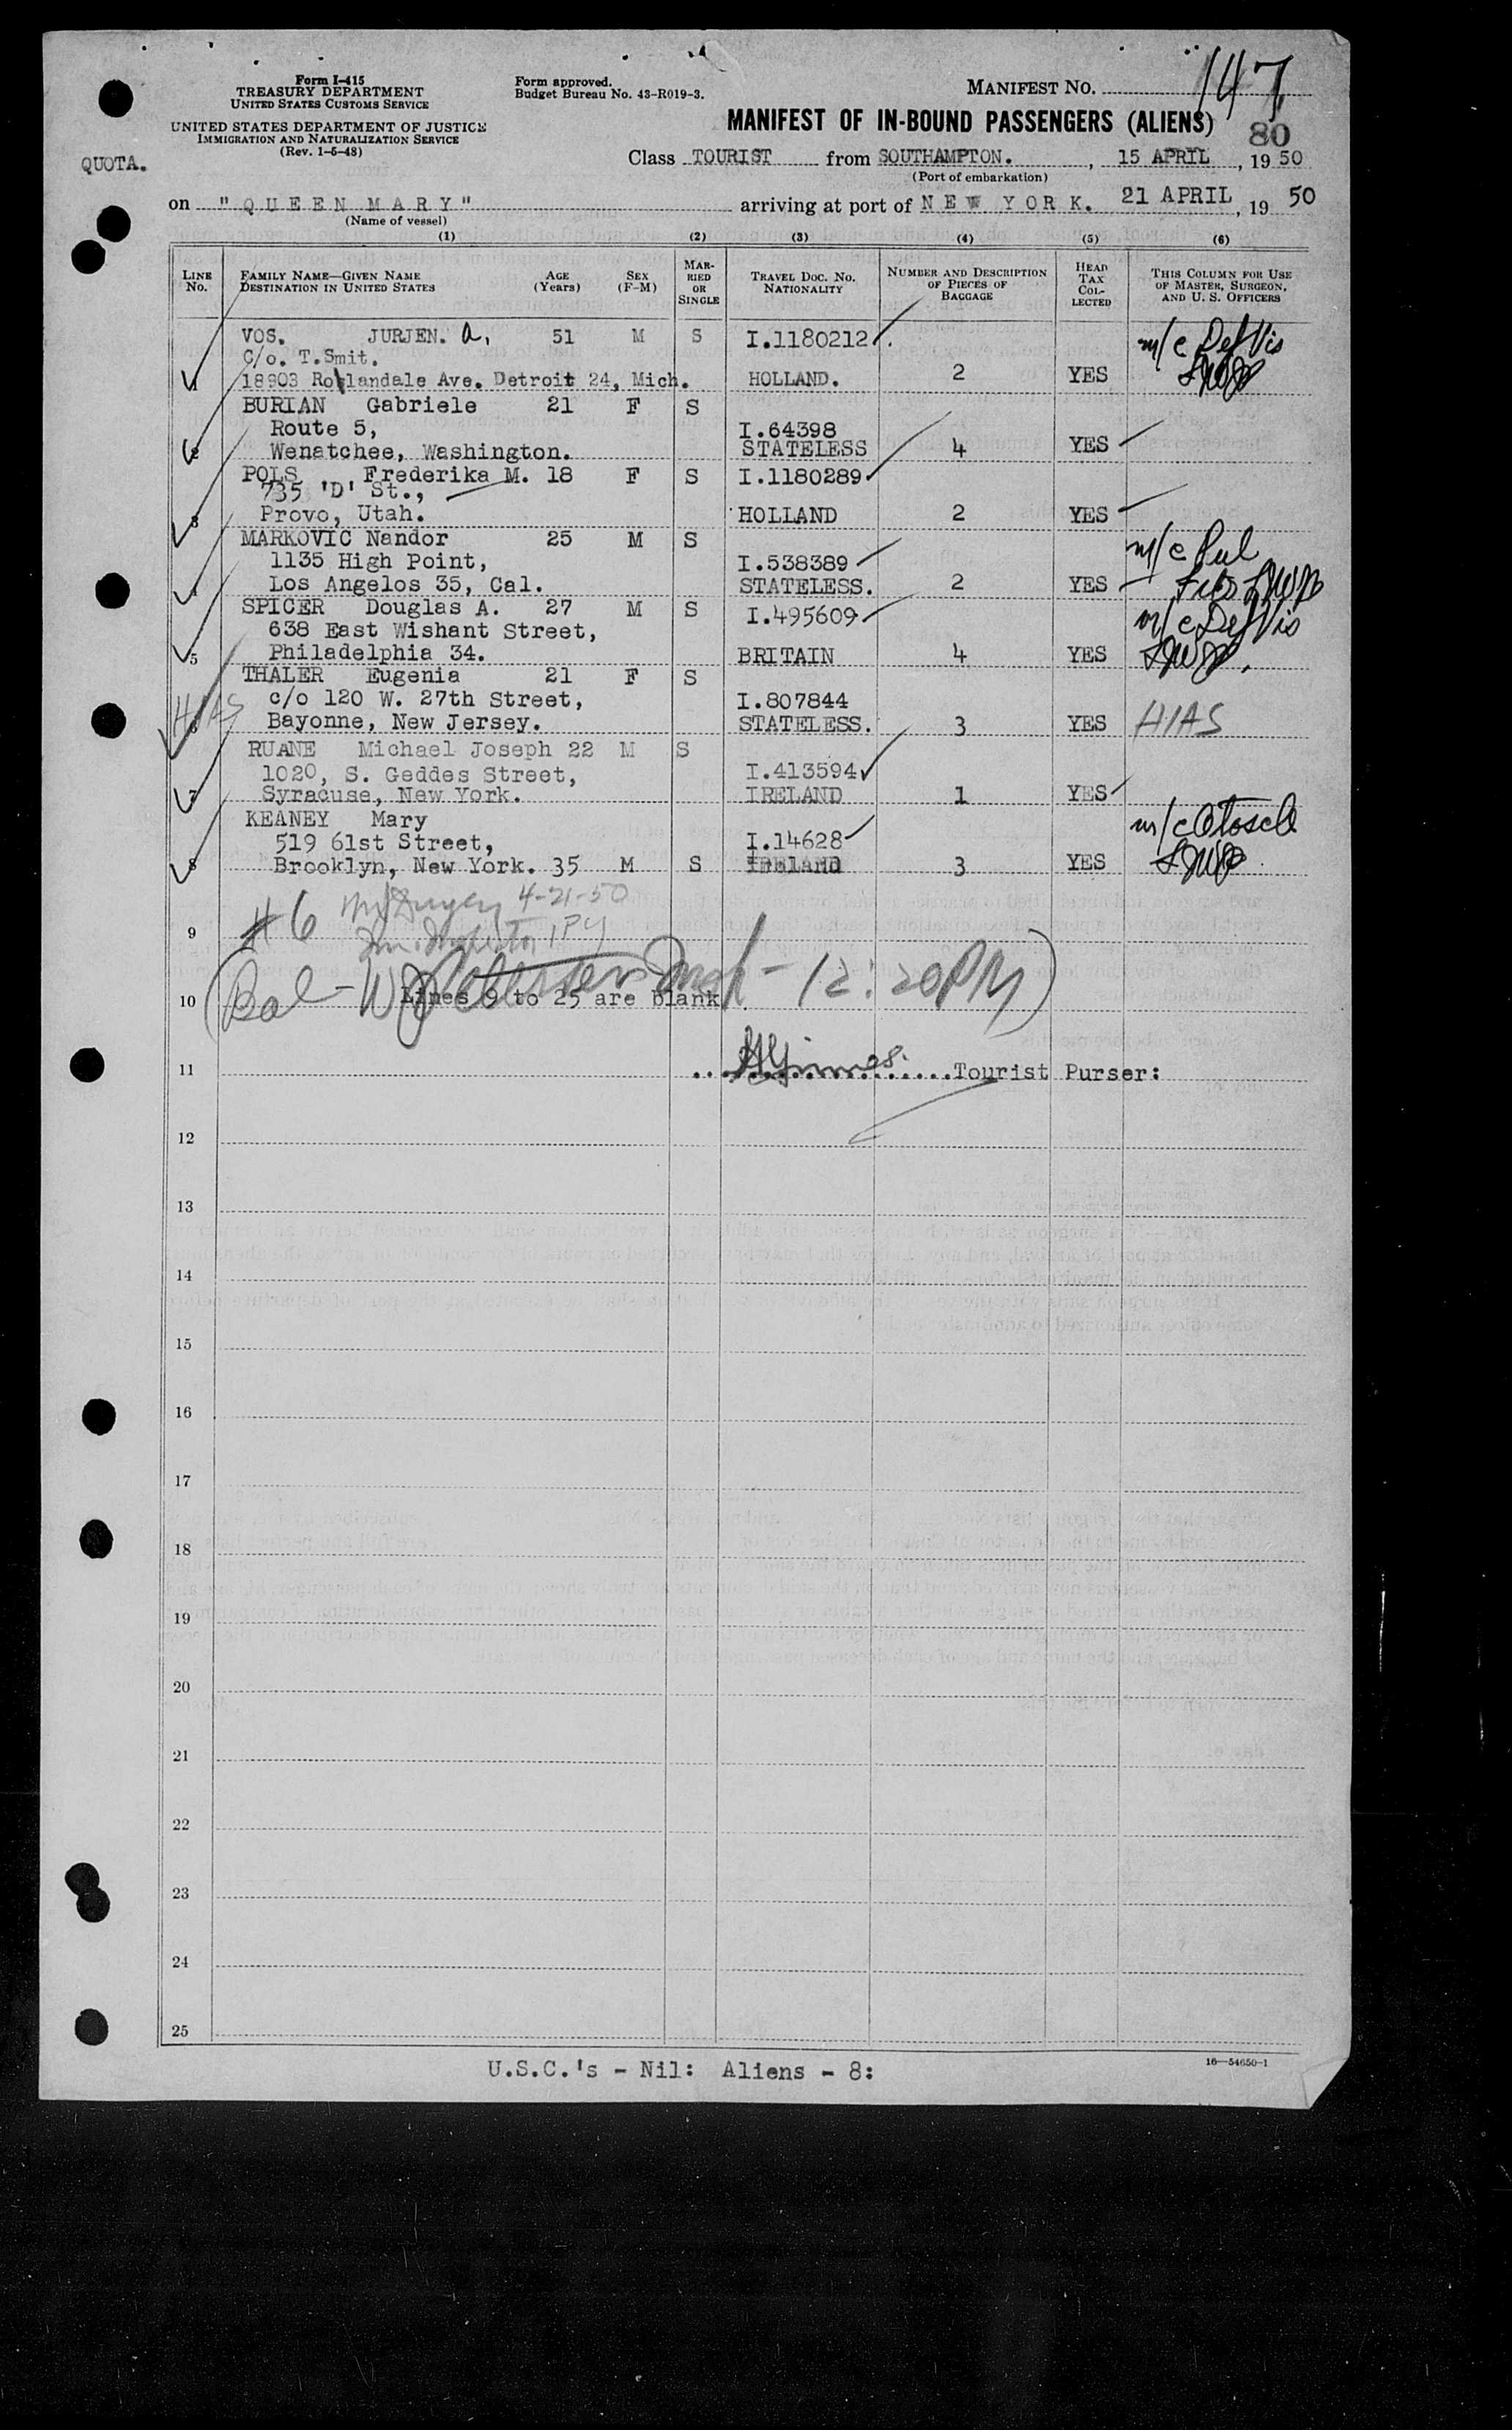 Form I-415
TREASURY DEPARTMENT
UNITED STATES CUSTOMS SERVICE
UNITED STATES DEPARTMENT OF JUSTICE
IMMIGRATION AND NATURALIZATION SERVICE
(Rev. 1-6-48)
QUOTA.
Form approved.
Budget Bureau No. 43-R019-3.
MANIFEST NO. 147
MANIFEST OF IN-BOUND PASSENGERS (ALIENS) 80
Class TOURIST from SOUTHAMPTON. , 15 APRIL , 19 50
(Port of embarkation)
on "QUEEN MARY" arriving at port of NEW YORK. 21 APRIL , 19 50
(Name of vessel)
(1) (2) (3) (4) (5) (6)
LINE No. FAMILY NAME—GIVEN NAME DESTINATION IN UNITED STATES AGE (Years) SEX (F-M) MARRIED OR SINGLE TRAVEL DOC. NO. NATIONALITY NUMBER AND DESCRIPTION OF PIECES OF BAGGAGE HEAD TAX COLLECTED THIS COLUMN FOR USE OF MASTER, SURGEON, AND U. S. OFFICERS
VOS. JURJEN. A. 51 M S I.1180212 m/c Def Vis
C/o. T.Smit.
1 18903 Roslandale Ave. Detroit 24, Mich. HOLLAND. 2 YES
BURIAN Gabriele 21 F S
Route 5, I.64398
2 Wenatchee, Washington. STATELESS 4 YES
POLS Frederika M. 18 F S I.1180289
735 'D' St.,
3 Provo, Utah. HOLLAND 2 YES
MARKOVIC Nandor 25 M S m/c Pul
1135 High Point, I.538389
4 Los Angelos 35, Cal. STATELESS. 2 YES
SPICER Douglas A. 27 M S I.495609 m/c Def Vis
638 East Wishant Street,
5 Philadelphia 34. BRITAIN 4 YES
THALER Eugenia 21 F S
HIAS c/o 120 W. 27th Street, I.807844
6 Bayonne, New Jersey. STATELESS. 3 YES HIAS
RUANE Michael Joseph 22 M S
1020, S. Geddes Street, I.413594
7 Syracuse, New York. IRELAND 1 YES
KEANEY Mary m/c
519 61st Street, I.14628
8 Brooklyn, New York. 35 M S IRELAND 3 YES
#6 4-21-50
9
10 Lines 9 to 25 are blank. 12:20PM
11 Tourist Purser:
12
13
14
15
16
17
18
19
20
21
22
23
24
25
U.S.C.'s - Nil: Aliens - 8:
16—54650-1